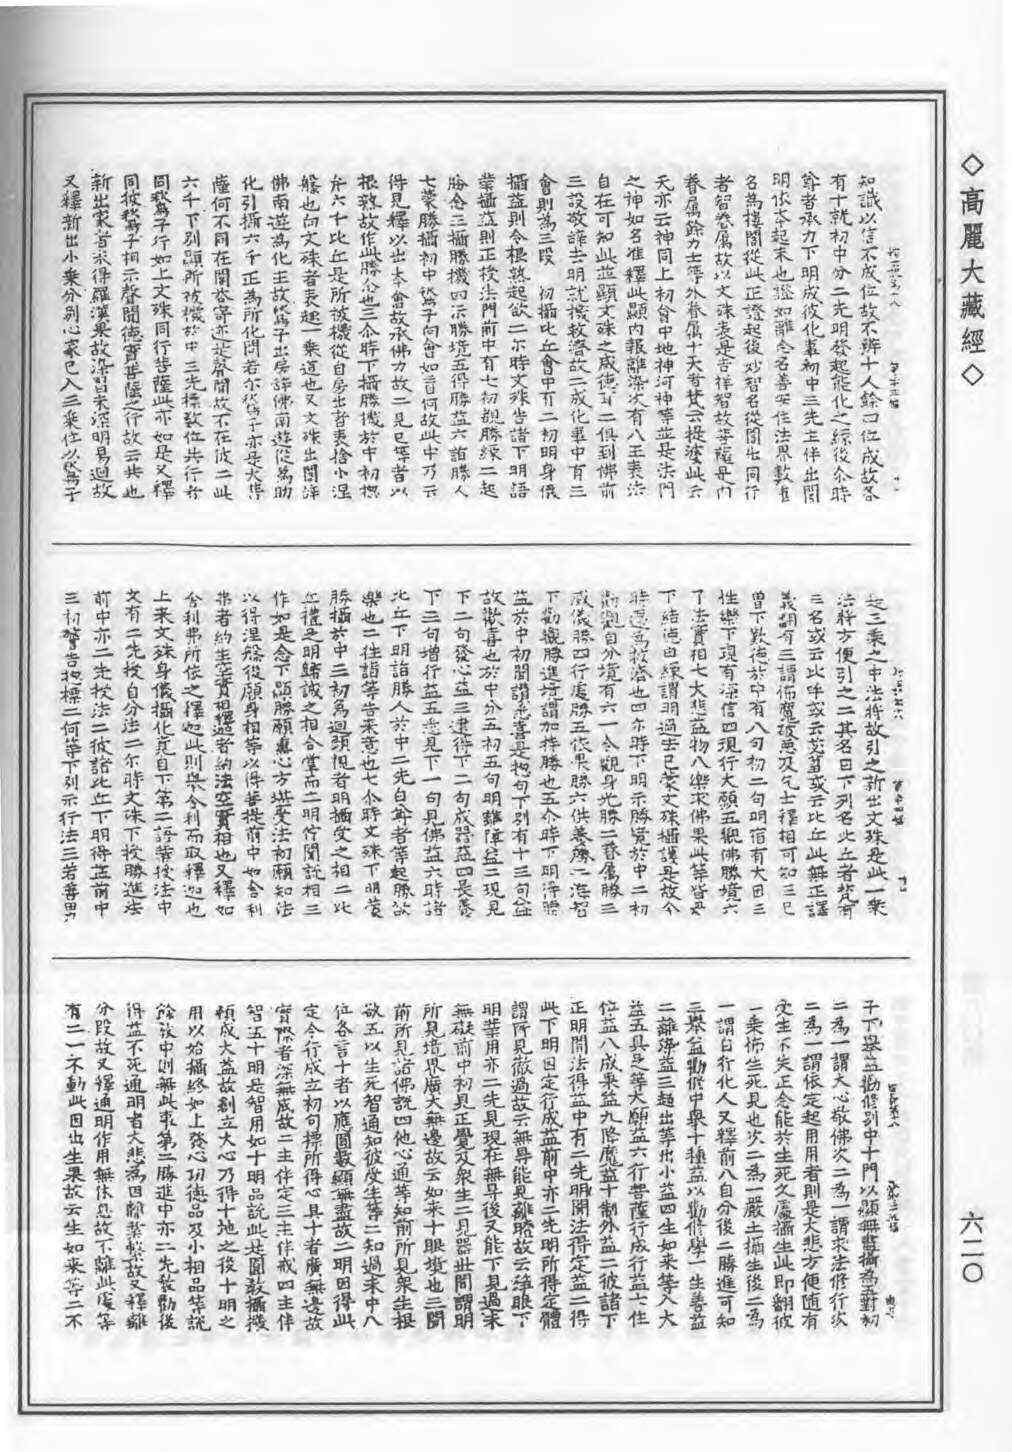 ◇高麗大藏經◇
六二〇
知識以信不成位故不辨十人餘四位成故各
有十就初中分二先明發起能化之緣後尒時
尊者承力下明成彼化事初中三先主伴出閣
名為樓閣從此正證起後妙智名從閣出同行
者智眷屬故以文殊表是吉祥智故菩薩是內
眷屬餘力士等外眷屬十天者梵云提婆此云
天亦云神同上初會中地神河神等並是法門
之神如名准釋此顯內報離染次有八王表法
自在可知此並顯文殊之威德耳二俱到佛前
三設敬辭去明就機救濟故二成化事中有三
會則為三段 初攝比丘會中有二初明身儀
攝益則令根熟起欲二尒時文殊告諸下明語
業攝益則正授法門前中有七初覩勝緣二起
勝念三攝勝機四示勝境五得勝益六詣勝人
七業勝攝初中鶖子向會如言何故此中乃云
得見釋以出本會故承佛力故二見已等者以
根熟故作此勝念也三尒時下攝勝機於中初標
舟六十比丘是所被機從自房出者表捨小涅
槃也向文殊者表趣一乘道也又文殊出閣辭
佛南遊為化主故鶖子出房辭佛南遊從為助
化引攝六千正為所化問若尒鶖子亦是大菩
薩何不同在閣答等迹是聲聞故不在彼二此
六千下別顯所被機於中三先標數位共行者
同鶖子行如上文殊同行菩薩此亦如是又釋
同彼鶖子相示聲聞德實菩薩之行故云共也
新出家者未得羅漢果故染習未深明易迴故
又釋新出小乘分別心家已入三乘位以鶖子
是三乘之中法將故引之新出文殊是此一乘
法將方便引之二其名曰下列名比丘者梵有
三名或云比呼或云苾蒭或云比丘此無正譯
義翻有三謂怖魔破惡及乞士釋相可知三已
曽下歎德於中有八句初二句明宿有大因三
性樂下現有深信四現行大願五觀佛勝境六
了法實相七大悲益物八樂求佛果此等皆是
下結德由緣謂明過去已蒙文殊攝護是故今
時還為救濟也四尒時下明示勝境於中二初
勸觀自分境有六一令觀身光勝二眷屬勝三
威儀勝四行處勝五依果勝六供養勝二海智
下勸觀勝進境謂加持勝也五尒時下明得勝
益於中初聞讚慈喜是揔句下別有十三句益
故歡喜也於中分五初五句明離障益二現見
下二句發心益三逮得下二句成器益四長養
下三句增行益五悉見下一句見佛益六時諸
比丘下明詣勝人於中二先白尊者等起勝欲
樂也二往詣等告來意也七尒時文殊下明業
勝攝於中二初為迴頭視者明攝受之相二比
丘禮足明歸誠之相合掌而二明佇聞說相三
作如是念下顯勝願專心方堪受法初願知法
以得涅槃後願身相等以得菩提前中如舍利
弗者約生空實相釋迦者約法空實相也又釋如
舍利弗所依之釋迦此則舉舍利而取釋迦也
上來文殊身儀攝化竟自下第二語業授法中
文有二先授自分法二尒時文殊下授勝進法
前中亦二先授法二彼諸比丘下明得益前中
三初警告揔標二何等下列示行法三若善男
子下舉益勸修列中十門以顯無盡攝為五對初
二為一謂大心敬佛次二為一謂求法修行次
二為一謂依定起用用者則是大悲方便隨有
受生不失正念能於生死久處攝生此即翻彼
二乘怖生死見也次二為一嚴土攝生後二為
一謂自行化人又釋前八自分後二勝進可知
三舉益勸修中舉十種益以勸修學一生善益
二離障益三超出等出小益四生如來等入大
益五具足等大願益六行菩薩行成行益七住
位益八成果益九降魔益十制外益二彼諸下
正明聞法得益中有二先明聞法得定益二得
此下明因定行成益前中亦二先明所得定體
謂所見徹過故云無导能見離暗故云強眼下
明業用亦二先見現在無导後又能下見過未
無礙前中初見正覺及衆生二見器世間謂明
所見境界廣大無邊故云如來十眼境也三聞
前所見諸佛說四他心通等知前所見衆生根
欲五以生死智通知彼受生等二知過未中八
位各言十者以應圓數顯無盡故二明因得此
定令行成立初句標所得心具十者廣無邊故
實際者深無底故二主伴定三主伴戒四主伴
智五十明是智用如十明品說此是圓教攝機
頓成大益故創立大心乃得十地之後十明之
用以始攝終如上發心功德品及小相品等說
餘教中則無此事第二勝進中亦二先教勸後
得益不死通明者大悲為因離繫縛故又釋離
分段故又釋通明作用無休息故不離此處等
有二一不動此因出生果故云生如來等二不